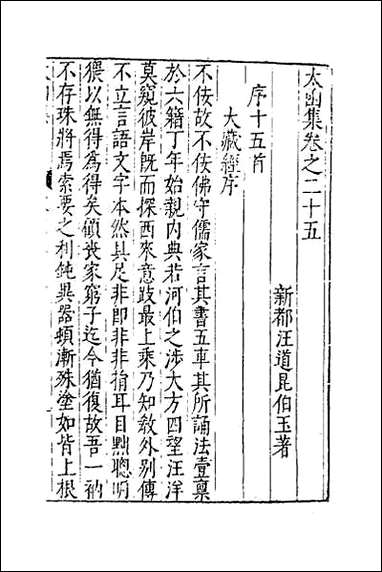 太函集卷之二十五
新都汪道昆伯玉著
序十五首
大藏經序
不佞故不佞佛守儒家言其書五車其所誦法壹稟
於六籍丁年始親內典若河伯之涉大方四望汪洋
莫窺彼岸既而探西來意跂最上乘乃知敎外別傳
不立言語文字本然具足非即非非捐耳目黜聰明
猥以無得為得矣顧喪家窮子迄今猶復故吾一衲
不存珠將焉索要之利鈍異器頓漸殊塗如皆上根